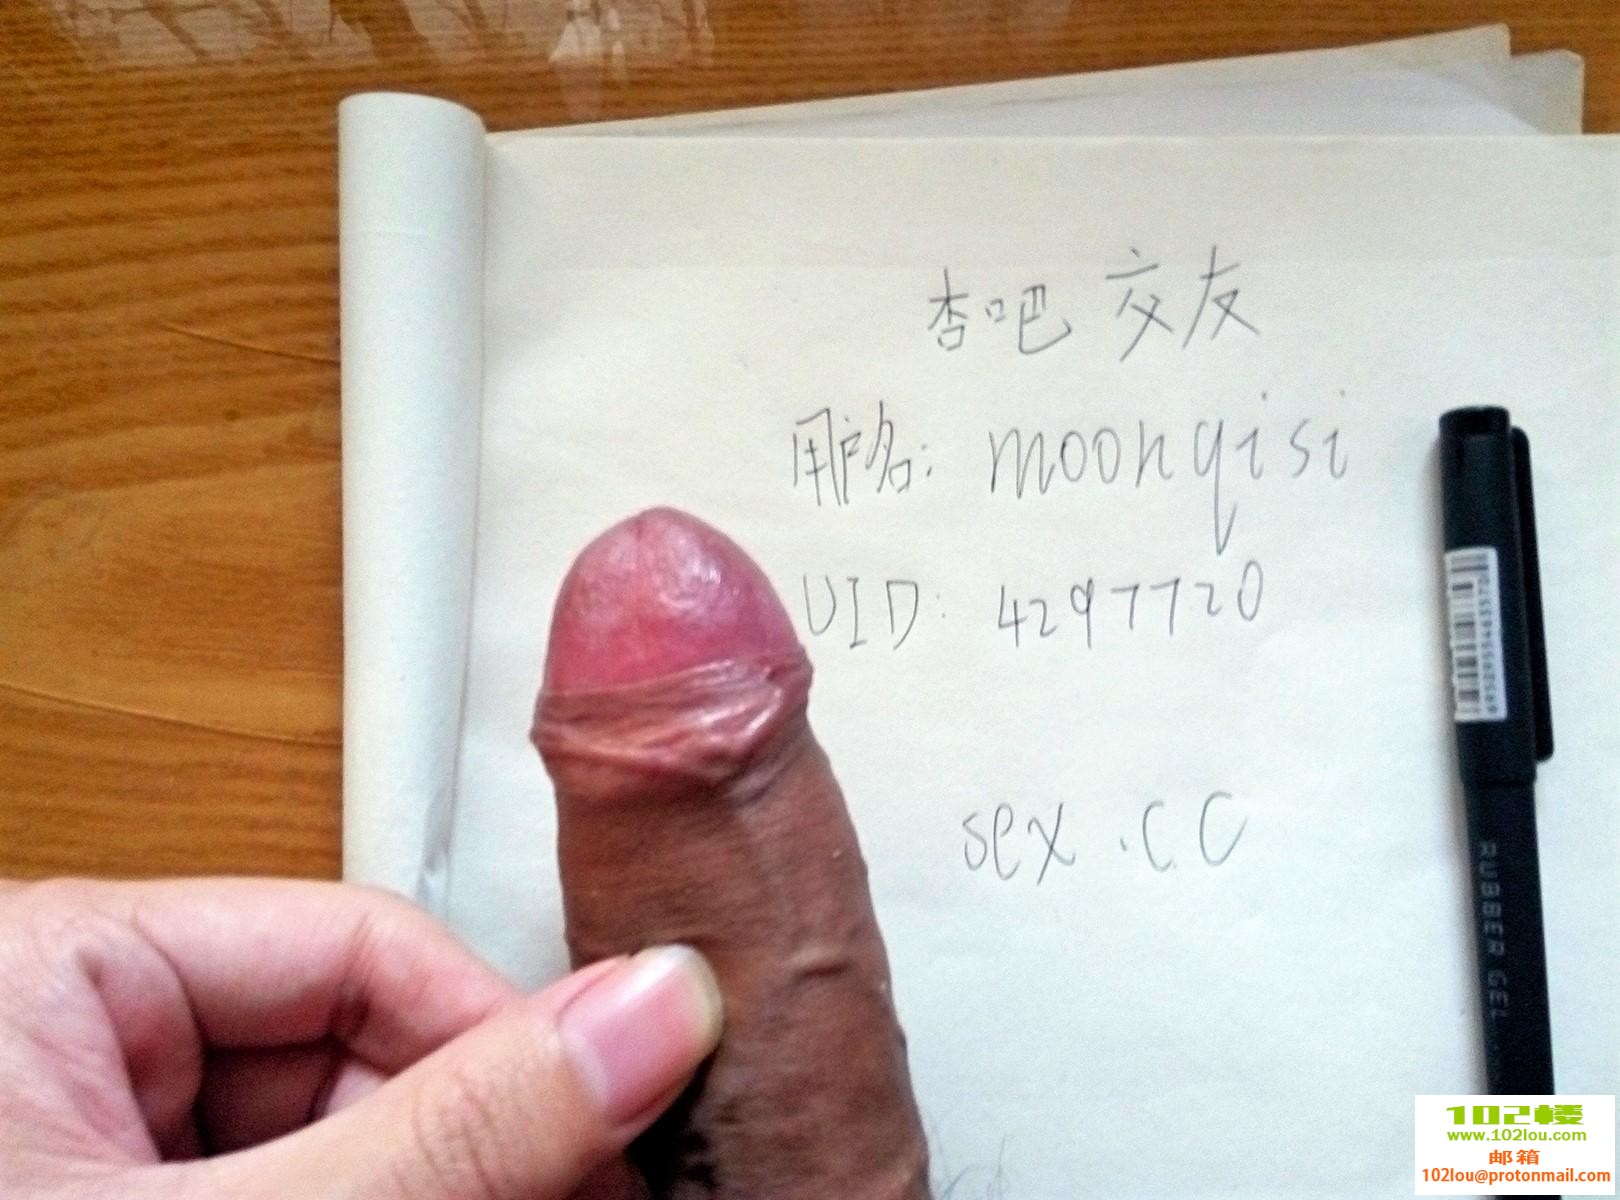 杏吧 交友
用户名: moonqisi
UID: 4297720
sex.cc
RUBBER GEL
102楼
www.102lou.com
邮箱
102lou@protonmail.com